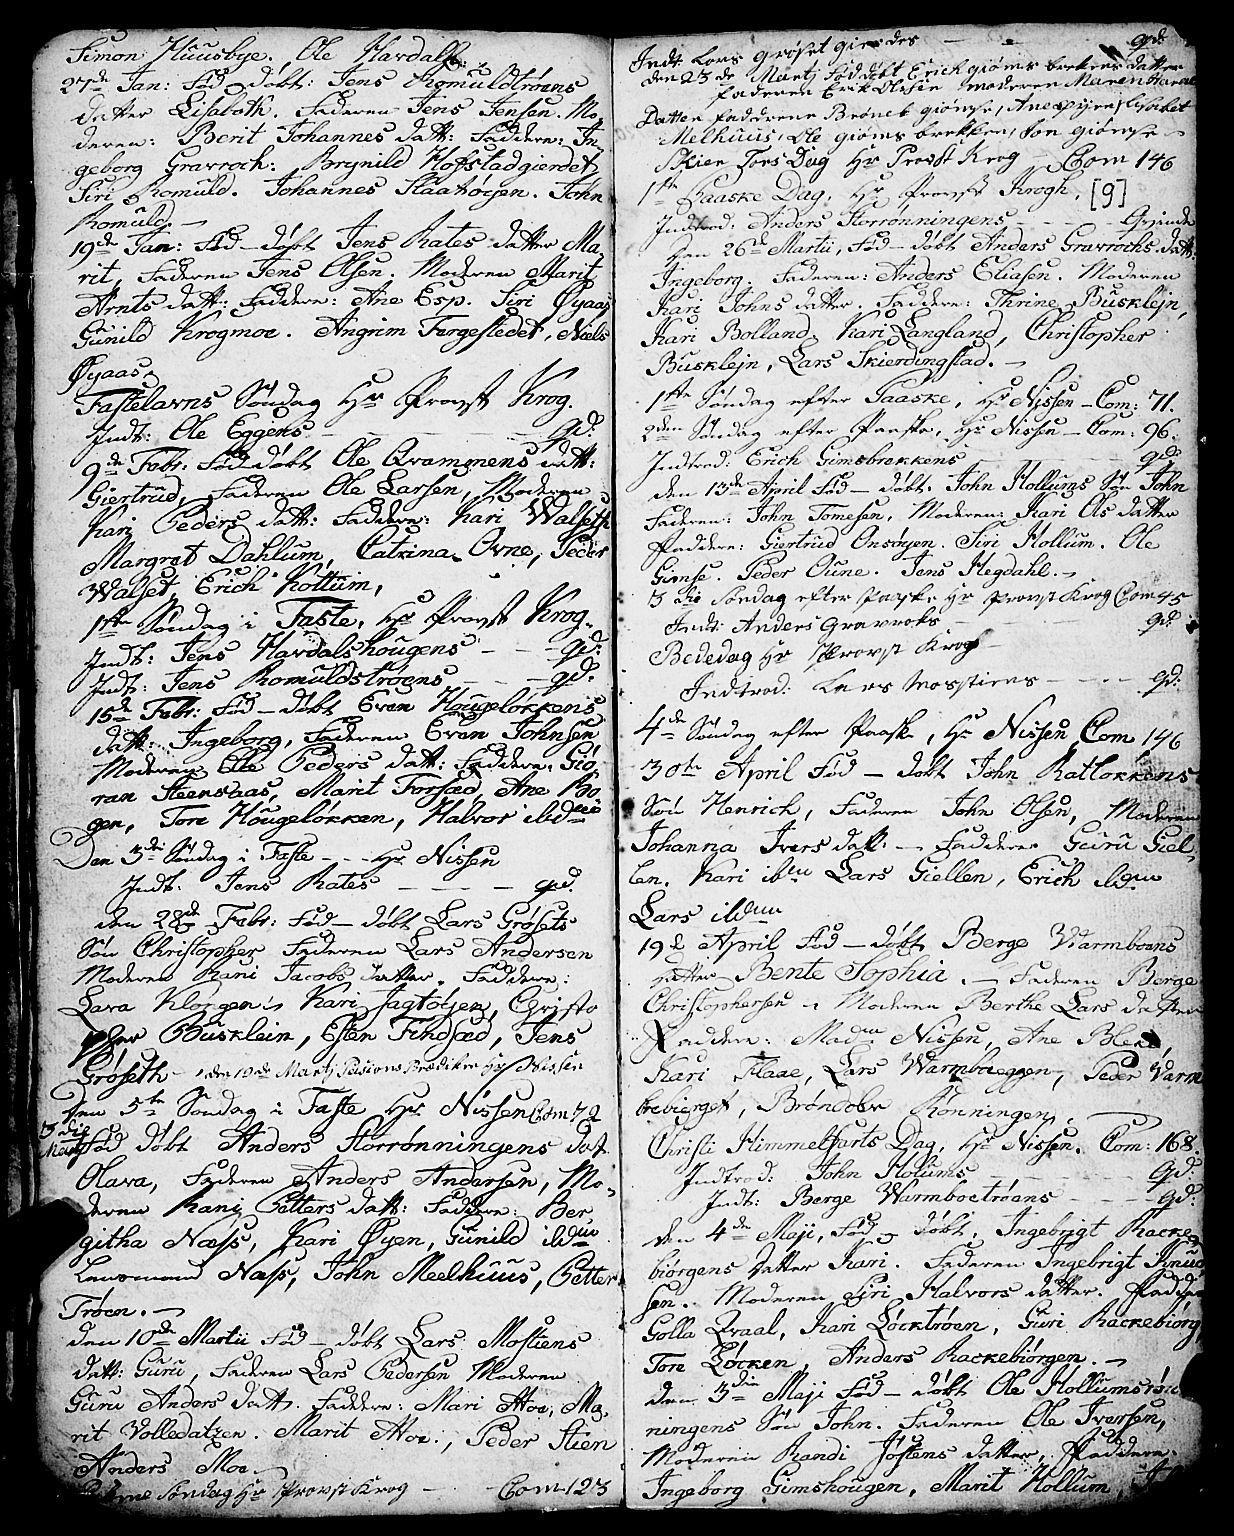 Simon Huusbye, Ole Hardals.
27de Jan: Fød døbt: Jens Romuldtrøens
datter Lisabeth. Faderen Jens Jensen. Mo-
deren: Berit Johannes datt: Faddere: In
geborg Gravroch: Brynild Hofstadgierdet
Siri Romuld. Johannes Slaatøien. John
Romuld.
19de Jan: Fød - døbt Jens Rates datter Ma
rit, Faderen Jens Olsen. Moderen Marit
Arnts datt: Faddere: Ane Esp. Siri Øyaas
Gunild Krogmoe. Angrim Fergestedet, Niels
Øyaas.
Fastelavns Søndag Hr Provst Krog.
Indt: Ole Eggens - - - gd.
9de Febr: Fød døbt Ole Qvammens datt:
Giertrud, Faderen Ole Larsen, Moderen
Kari Peders datt: Faddere: Kari Walseth
Margret Dahlum, Catrina Ovne, Peder
Walset, Erich Kottum,
1ste Søndag i Faste, Hr Provst Krog.
Indt: Jens Hardalshougens - - gd:
Indt: Jens Romuldstrøens - - - gd:
15de Febr: Fød - døbt Even Hougeløkkens
datt: Ingeborg, Faderen Even Johnsen
Moderen Ole Peders datt: Faddere: Giø
ran Steensaas, Marit Forsad, Ane Bø
gen, Tore Hougeløkken, Halvor ibidem
Den 3die Søndag i Faste - - Hr Nissen
Indt: Jens Rates - - - gd.
den 28de Febr: Fød - døbt Lars Grøsets
Søn Christopher Faderen Lars Andersen
Moderen Kari Jacobs datter. Faddere:
Lava Klongen Kari Jagtøien, Christo
pher Busklein, Esten Findsad, Jens
Grøseth - den 10de Martj Passions Prædiken Hr Nissen
Den 5te Søndag i Faste Hr Nissen Com 72
3die
Martj Fød døbt Anders Storrønningens datt
Olava, Faderen Anders Andersen, Mo
deren Kari Petters datt: Faddere: Ber
githa Næss, Kari Øyen, Gunild ibidem
Lensmand Næss, John Meelhuus, Petter
Trøen.
den 10de Martii Fød - døbt Lars Mostiens
datt: Guru, Faderen Lars Pedersen Moderen
Guru Anders datt. Faddere: Mari Moe, Ma
rit Volledatzen. Marit Moe., Peder Stien
Anders Moe.
Palme Søndag Hr Provst Krog - - Com 123
Indt: Lars Grøset gierdes - - gd:
den 23de Martj Fød døbt Erich gioms brekens datter
faderen Erik Olsen moderen Maren
Datter faderene Brønel gioimse, Ane
Melhuus, Ole gioms brekken, Jon gioimse
Skier Tors Dag Hr Provst Krog - Com 146
1ste Paaske Dag, Hr Provst Krogh. [9]
Indtrod: Anders Storrønningens - - - Qvinde
Den 26de Martii, Fød - døbt Anders Gravrochs datt:
Ingeborg, Faderen: Anders Eliasen. Moderen
Kari Johns datter Faddere: Thrine Busklejn,
Kari Bolland. Kari Langland, Christopher
Busklejn, Lars Skierdingstad.
1ste Søndag efter Paaske, Hr Nissen - Com: 71.
2den Søndag efter Paaske, Hr Nissen - Com: 96.
Indtrod: Erich Gimsbrekkens - - gd:
den 13de April Fød - døbt. John Hollums Søn John
Faderen: John Tomesen, Moderen: Kari Ols datter
Faddere: Giertrud Onsøyen. Siri Hollum. Ole
Gimse. Peder Oune. Jens Hegdahl.
3die Søndag efter Paaske Hr Provst Krog Com 45
Indt: Anders Gravroks - - - gd.
Bededag Hr Provst Krog -
Indtrod: Lars Mosstiens - - - gd:
4de Søndag efter Paaske, Hr Nissen Com 146
30te April Fød - døbt John Ratløkkens
Søn Henrich, Faderen John Olsen, Moderen
Johanna Ivers datt. - Faddere Guru Giel
len. Kari ibm Lars Giellen, Erich ibidem
Lars ibidem
19de April Fød - døbt Berge Warmboens
datter Bente Sophia. - Faderen Berge
Christophersen - Moderen Berthe Lars datter
Faddere: Madm Nissen, Ane
Kari Flaae, Lars Warmboeggen, Peder Varm
bebierget, Brøndolv Rønningen,
Christi Himmelfarts Dag, Hr Nissen. Com: 168.
Indtrod: John Holums - - - Qd.
Indt: Berge Warmboetrøens - - - gd:
den 4de Maji, Fød døbt, Ingebrigt Racke
biørgens datter Kari. Faderen Ingebrigt Knud
sen. Moderen Siri Halvors datter. Fadde
Golla Qvaal, Kari Løcktrøen, Guri Rackebiørg
Tore Løcken, Anders Rackebiørgen.
den 3die Maji Fød - døbt Ole Hollumsrøn
ningens Søn John. Faderen Ole Iversen,
Moderen Randi Jostens datter, Faddere:
Ingeborg Gimshougen, Marit Hollum,